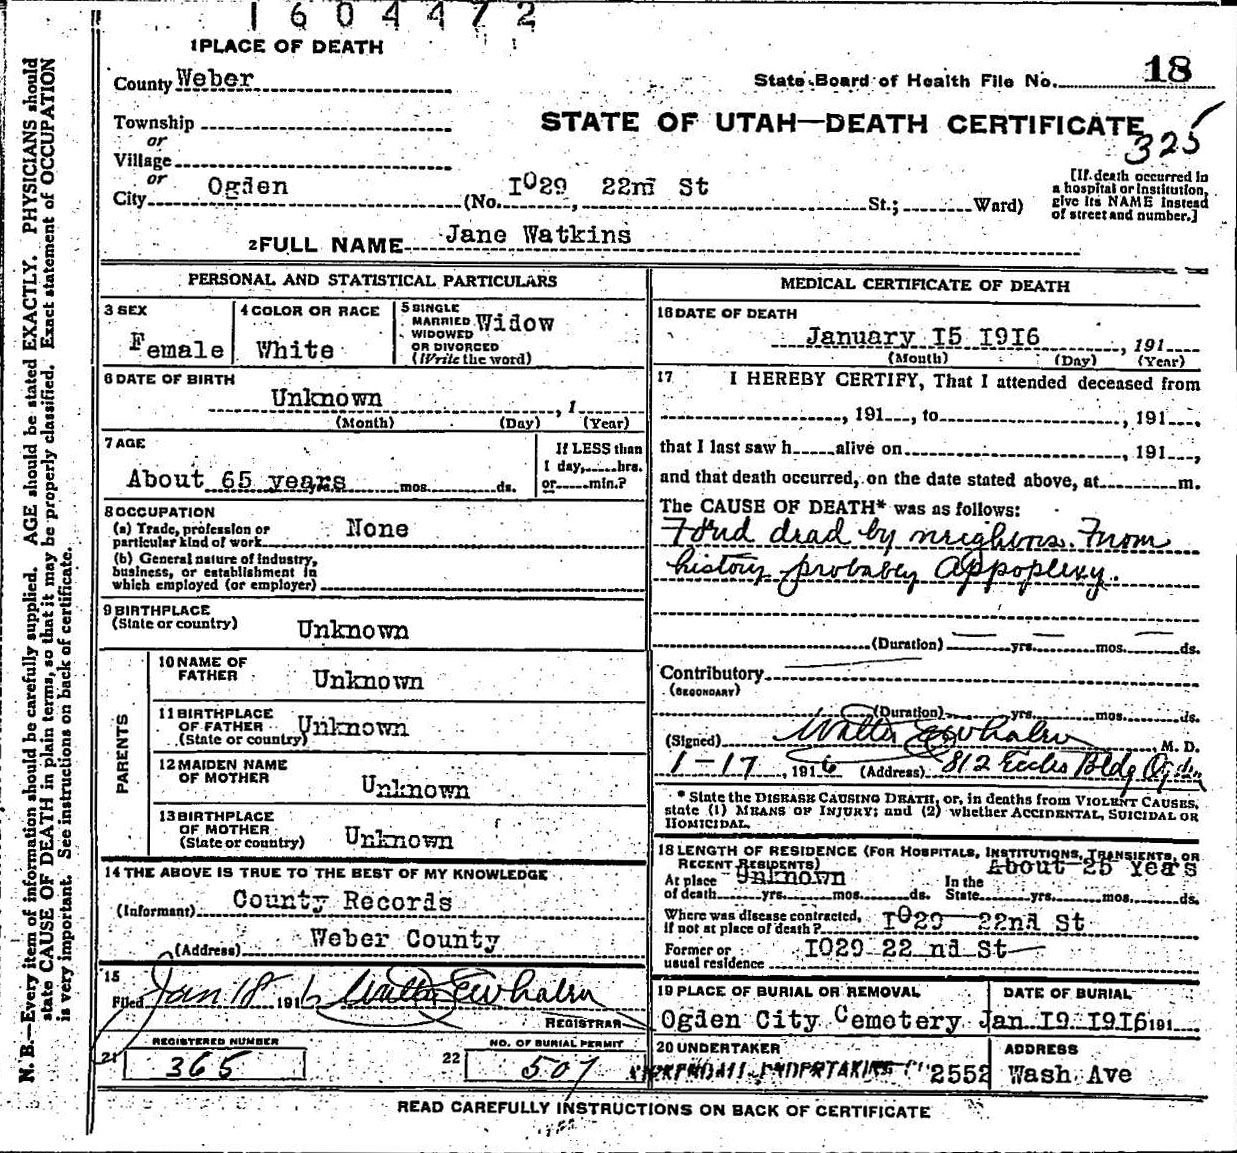 1604472
1 PLACE OF DEATH
County Weber
State Board of Health File No. 18
Township
or
STATE OF UTAH—DEATH CERTIFICATE
325
Village
or
City Ogden (No. 1029 22nd St St.; Ward)
[If death occurred in
a hospital or institution,
give its NAME instead
of street and number.]
2 FULL NAME Jane Watkins
PERSONAL AND STATISTICAL PARTICULARS
3 SEX
Female
4 COLOR OR RACE
White
5 SINGLE
MARRIED
WIDOWED
OR DIVORCED
(Write the word)
Widow
6 DATE OF BIRTH
Unknown , 1
(Month) (Day) (Year)
7 AGE
About 65 years mos. ds.
If LESS than
1 day, hrs.
or min.?
8 OCCUPATION
(a) Trade, profession or
particular kind of work None
(b) General nature of industry,
business, or establishment in
which employed (or employer)
9 BIRTHPLACE
(State or country) Unknown
PARENTS
10 NAME OF
FATHER Unknown
11 BIRTHPLACE
OF FATHER
(State or country) Unknown
12 MAIDEN NAME
OF MOTHER Unknown
13 BIRTHPLACE
OF MOTHER
(State or country) Unknown
14 THE ABOVE IS TRUE TO THE BEST OF MY KNOWLEDGE
(Informant) County Records
(Address) Weber County
15
Filed Jan 18 1916 Walter E Whalen
REGISTRAR
21 REGISTERED NUMBER
365
22 NO. OF BURIAL PERMIT
507
MEDICAL CERTIFICATE OF DEATH
16 DATE OF DEATH
January 15 1916 , 191
(Month) (Day) (Year)
17 I HEREBY CERTIFY, That I attended deceased from
, 191 , to , 191 ,
that I last saw h alive on , 191 ,
and that death occurred, on the date stated above, at m.
The CAUSE OF DEATH* was as follows:
Found dead by neighbors. From
history probably appoplexy.
(Duration) yrs. mos. ds.
Contributory
(SECONDARY)
(Duration) yrs. mos. ds.
(Signed) Walter E Whalen , M. D.
1-17 , 1916 (Address) 812 Eccles Bldg Ogden
* State the DISEASE CAUSING DEATH, or, in deaths from VIOLENT CAUSES,
state (1) MEANS OF INJURY; and (2) whether ACCIDENTAL, SUICIDAL OR
HOMICIDAL.
18 LENGTH OF RESIDENCE (FOR HOSPITALS, INSTITUTIONS, TRANSIENTS, OR
RECENT RESIDENTS)
At place
of death Unknown yrs. mos. ds.
In the
State About 25 Years yrs. mos. ds.
Where was disease contracted,
if not at place of death? 1029 22nd St
Former or
usual residence 1029 22 nd St
19 PLACE OF BURIAL OR REMOVAL
Ogden City Cemetery
DATE OF BURIAL
Jan 19 1916 191
20 UNDERTAKER
UNDERTAKING 2552
ADDRESS
Wash Ave
READ CAREFULLY INSTRUCTIONS ON BACK OF CERTIFICATE
N. B.—Every item of information should be carefully supplied. AGE should be stated EXACTLY. PHYSICIANS should
state CAUSE OF DEATH in plain terms, so that it may be properly classified. Exact statement of OCCUPATION
is very important. See instructions on back of certificate.